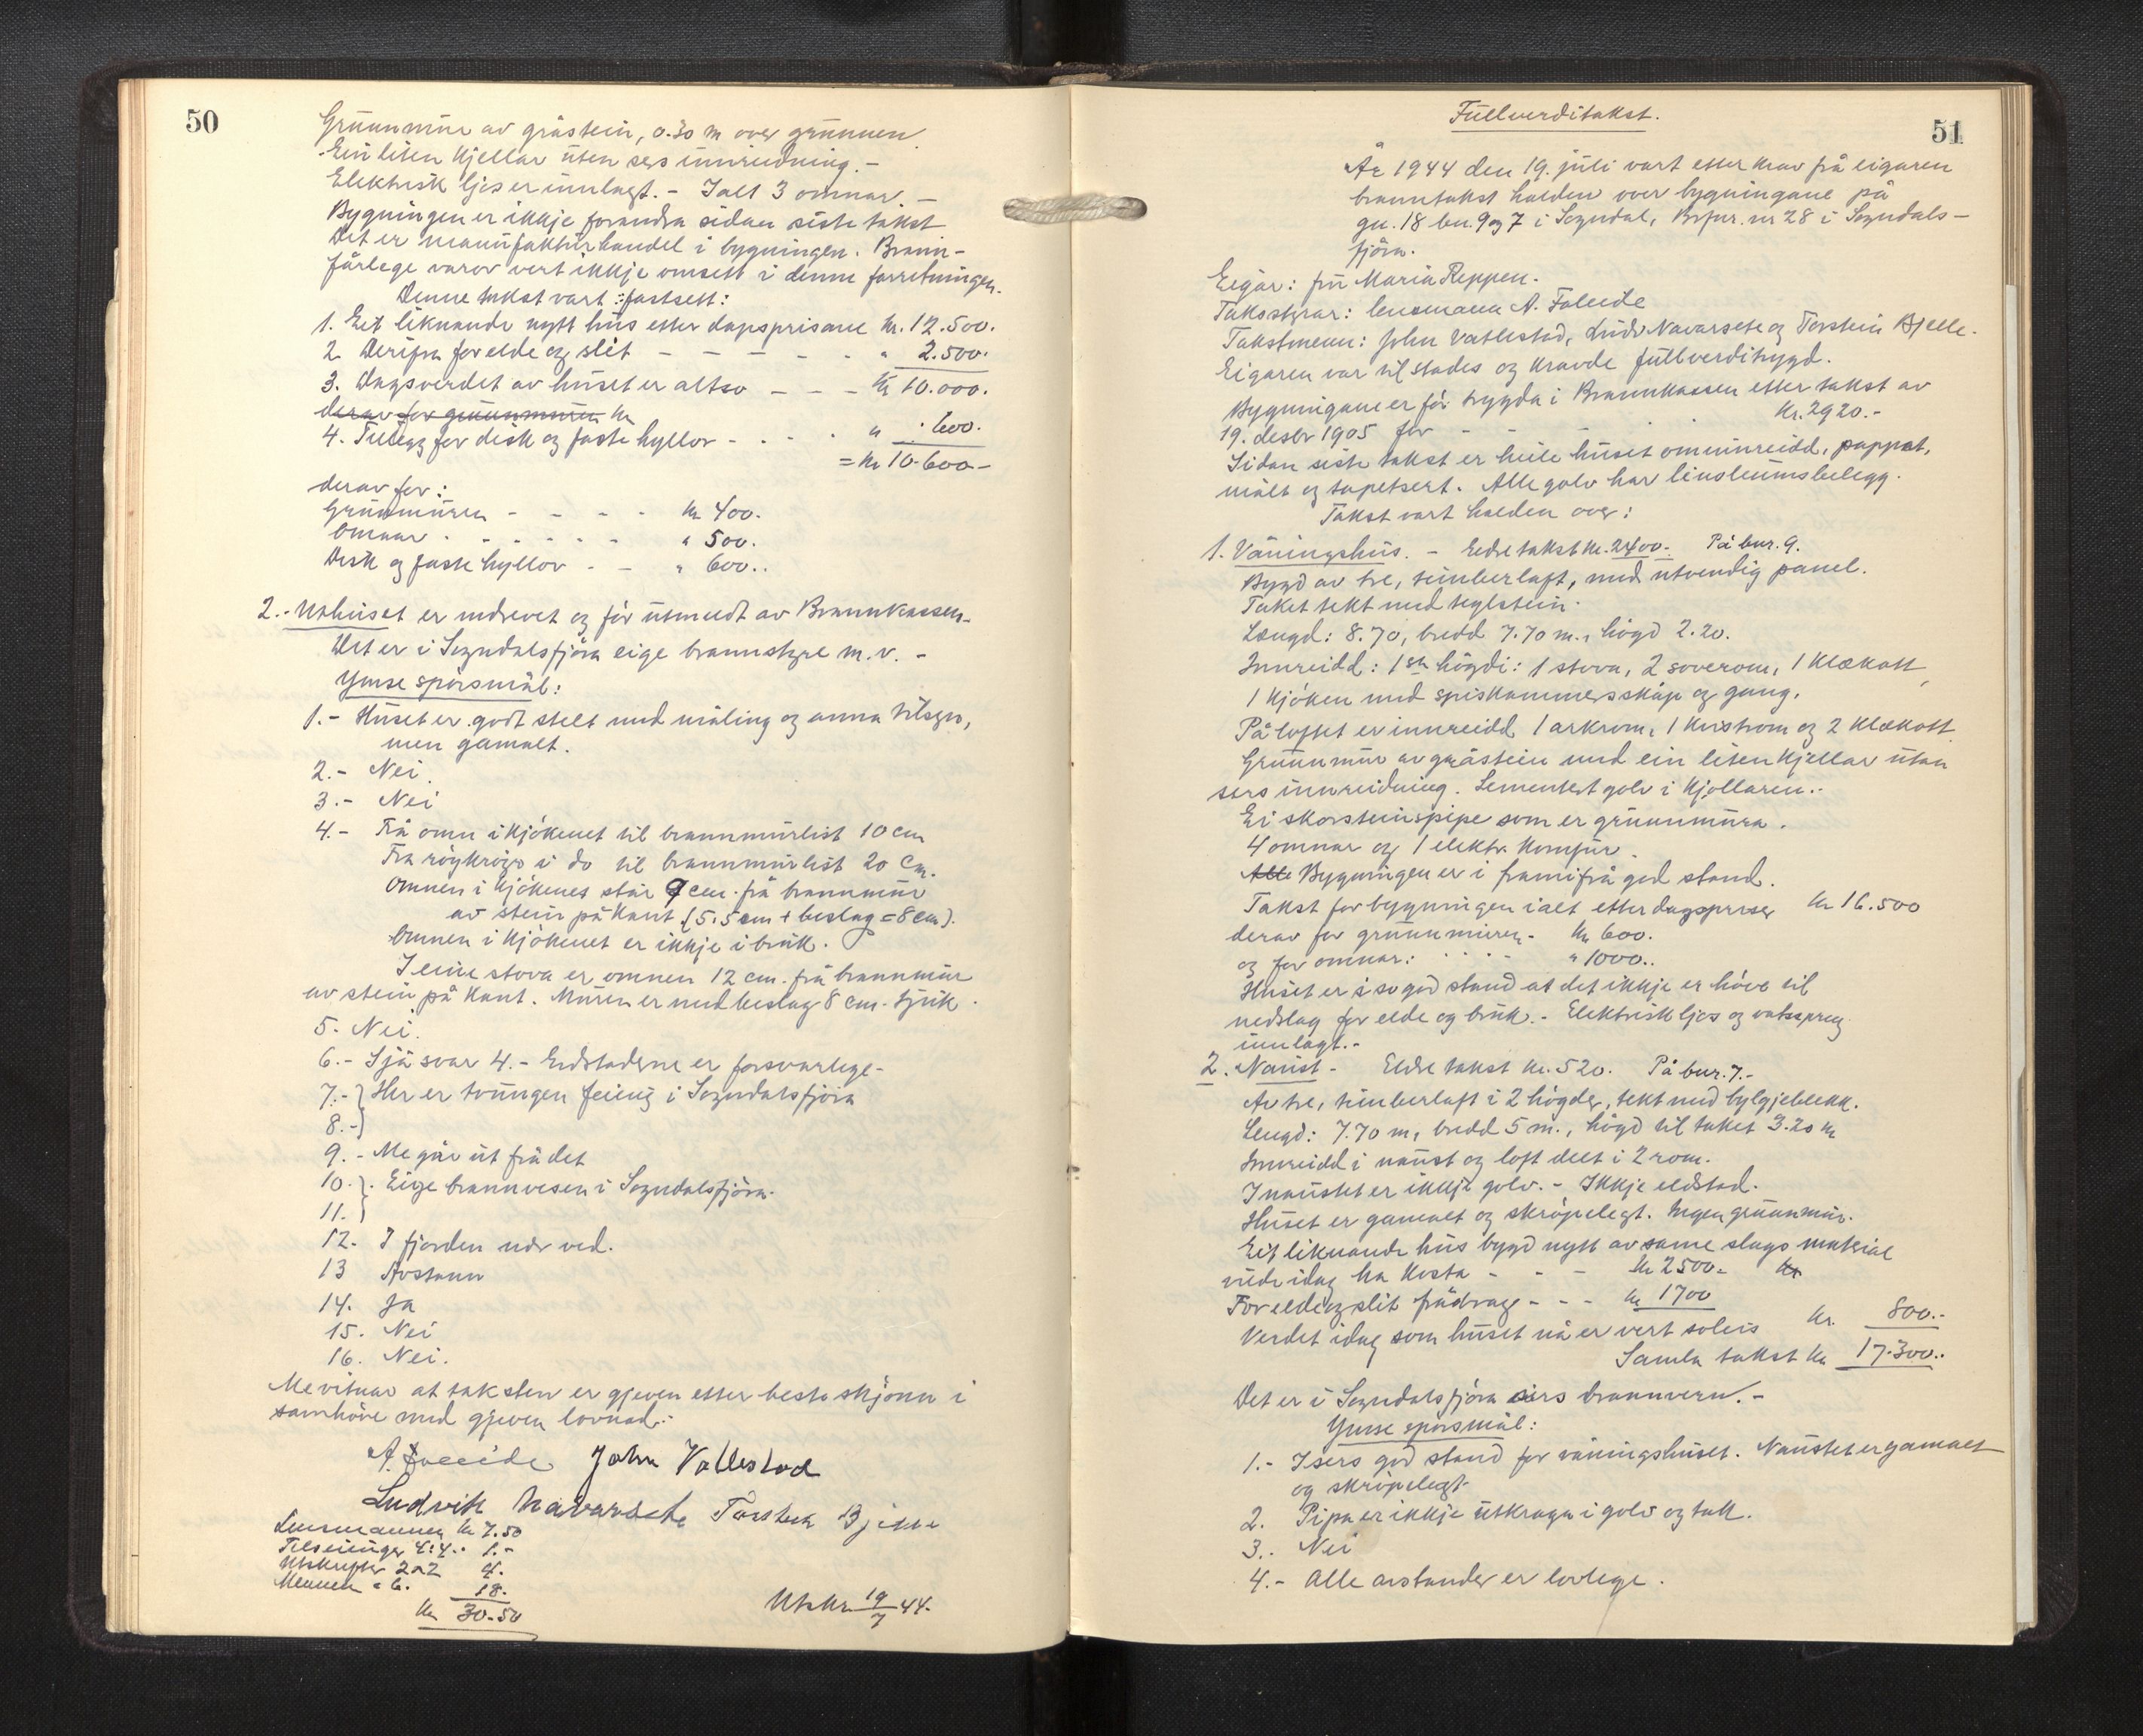 50
Grunnmur av gråstein, 0.30 m over grunnen.
Ein liten kjellar uten sers innreidning. -
Elektrisk ljos er innlagt. - Ialt 3 omnar. -
Bygningen er ikkje forandra sidan siste takst
Det er manufakturhandel i bygningen. Brann-
fårlege varor vert ikkje omsett i denne forretningen.
Denne takst vart fastsett:
1. Eit liknande nytt hus etter dagsprisane kr. 12.500.
2. Derifra for elde og slit - - - - - " 2.500.
3. Dagsverdet av huset er altso - - - kr 10.000.
derav for grunnmuren kr
4. Tillegg for disk og faste hyllor - - - - " 600.
= kr 10.600 -
derav for:
Grunnmuren - - - - kr 400.
Omnar . . . . . . " 500.
Disk og faste hyllor - - " 600..
2. - Uthuset er nedrevet og fôr utmeldt av Brannkassen.
Det er i Sogndalsfjøra eige brannstyre m.v. -
Ymse spørsmål:
1. - Huset er godt stelt med måling og anna tilsyn,
men gamalt.
2. - Nei.
3. - Nei
4. - Frå omn i kjøkenet til brannmurlist 10 cm
Fra røykrøyr i do til brannmurlist 20 cm.
Omnen i kjøkenet står 9 cm. frå brannmur
av stein på kant (5.5 cm + beslag = 8 cm).
Omnen i kjøkenet er ikkje i bruk.
I eine stova er omnen 12 cm. frå brannmur
av stein på kant. Muren er med beslag 8 cm. tjukk.
5. Nei.
6. - Sjå svar 4. - Eldstadene er forsvarlege -
7. - } Her er tvungen feiing i Sogndalsfjøra
8. - }
9. - Me går ut frå det
10. }. Eige brannvesen i Sogndalsfjøra.
11. }
12. I fjorden nær ved.
13 Avstann
14. Ja
15. Nei
16. Nei.
Me vitnar at taksten er gjeven etter beste skjønn i
samhøve med gjeven lovnad. -
A. Faleide John Vatlestad
Ludvik Navarsete Torstein Bjelle
Lensmannen kr 7.50
Tilseiingar 4:4.. 1. -
Utskrifter 2 a 2 4.
Mennene a 6. 18.
kr 30.50
Utskr 19/7 44.
Fullverditakst.
51
År 1944 den 19. juli vart etter krav frå eigaren
branntakst halden over bygningane på
gn. 18 bn. 9 og 7 i Sogndal, Brfnr. nr 28 i Sogndals-
fjøra.
Eigar: fru Maria Reppen.
Takststyrar: lensmann A. Faleide
Takstmenn: John Vatlestad, Ludv. Navarsete og Torstein Bjelle.
Eigaren var til stades og kravde fullverditrygd.
Bygningane er før trygda i Brannkassen etter takst av
19. desbr 1905 for - - - - kr. 2920. -
Sidan siste takst er heile huset ominnreidd, pappat,
målt og tapetsert. Alle golv har linoleumsbelegg.
Takst vart halden over:
1. Våningshus. - Eldre takst kr. 2400. På bnr. 9.
Bygd av tre, timberlaft, med utvendig panel.
Taket tekt med teglstein.
Længd: 8.70, bredd 7.70 m., högd 2.20.
Innreidd: 1ste högdi: 1 stova, 2 soverom, 1 klækott,
1 kjøken med spiskammersskåp og gang.
På loftet er innreidd 1 arkrom, 1 kvistrom og 2 klækott.
Grunnmur av gråstein med ein liten kjellar utan
sers innreidning. Sementert golv i kjellaren. -
Ei skorsteinspipe som er grunnmura.
4 omnar og 1 elektr. komfur.
Alle Bygningen er i framifrå god stand.
Takst for bygningen ialt etter dagspriser kr 16.500
derav for grunnmuren - kr 600.
og for omnar: . . . . " 1000..
Huset er i so god stand at det ikkje er høve til
nedslag for elde og bruk. - Elektrisk ljos og vatsspreng
innlagt. -
2. Naust - Eldre takst kr. 520. På bnr. 7. -
Av tre, timberlaft i 2 högder, tekt med bylgjeblekk.
Lengd: 7.70 m, bredd 5 m., högd til taket 3.20 m
Innreidd i naust og loft delt i 2 rom.
I naustet er ikkje golv. - Ikkje eldstad.
Huset er gamalt og skrøpelegt. Ingen grunnmur.
Eit liknande hus bygd nytt av same slags material
vilde idag ha kosta - - - kr 2500. kr
For elde og slit frådrage - - - kr 1700
Verdet idag som huset nå er vert soleis kr. 800. -
Samla takst kr 17.300..
Det er i Sogndalsfjøra sers brannvern. -
Ymse spørsmål:
1. - I sers god stand for våningshuset. Naustet er gamalt
og skrøpelegt.
2. Pipa er ikkje utkraga i golv og tak.
3. - Nei
4. - Alle avstander er lovlege.